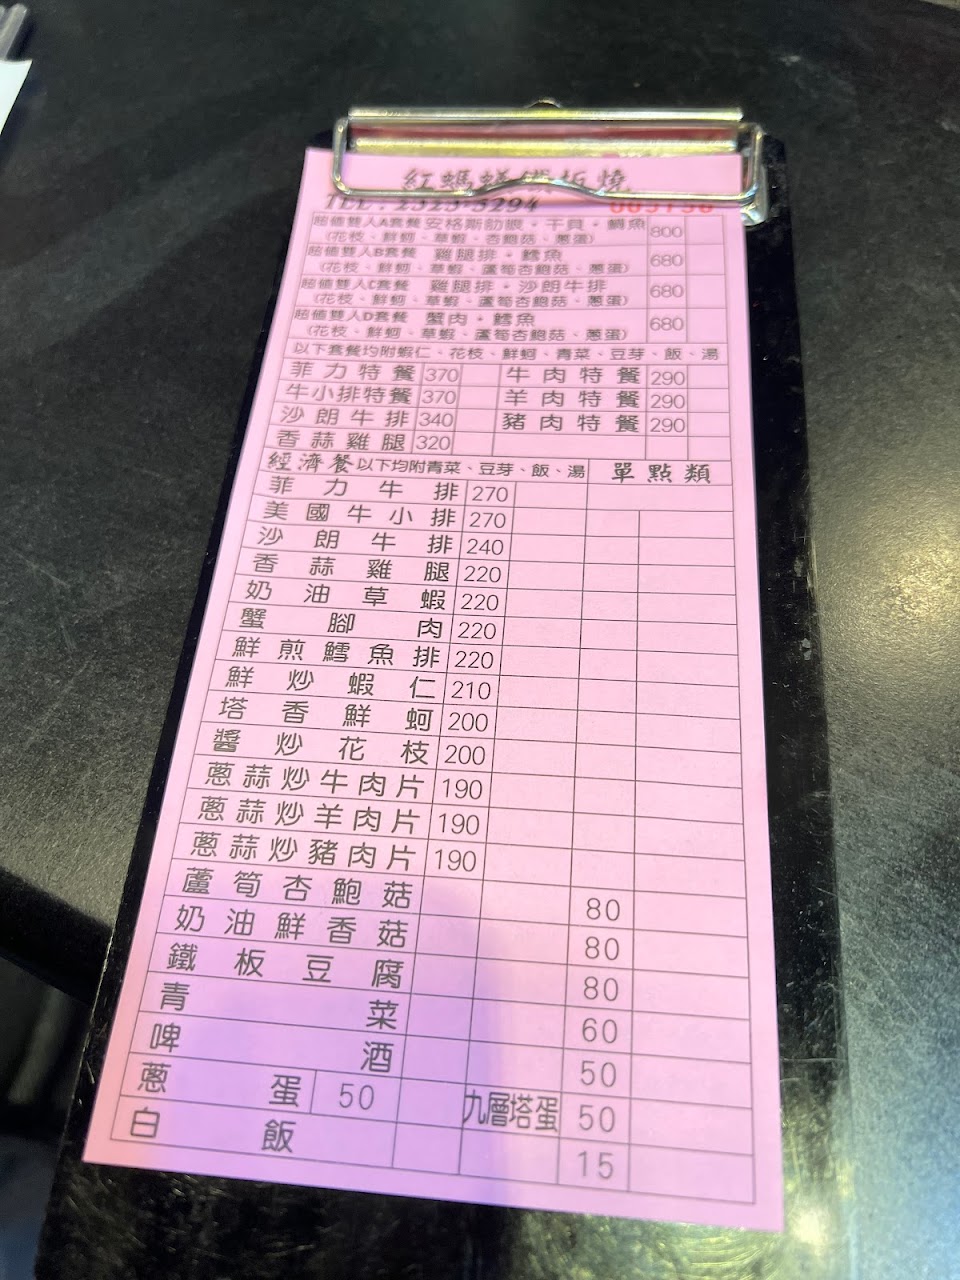 紅螞蟻鐵板燒
TEL : 2325-5294
超值雙人A套餐 安格斯肋眼・干貝・鯛魚 800
(花枝、鮮蚵、草蝦、杏鮑菇、蔥蛋)
超值雙人B套餐 雞腿排・鱈魚 680
(花枝、鮮蚵、草蝦、蘆筍杏鮑菇、蔥蛋)
超值雙人C套餐 雞腿排・沙朗牛排 680
(花枝、鮮蚵、草蝦、蘆筍杏鮑菇、蔥蛋)
超值雙人D套餐 蟹肉・鱈魚 680
(花枝、鮮蚵、草蝦、蘆筍杏鮑菇、蔥蛋)
以下套餐均附蝦仁、花枝、鮮蚵、青菜、豆芽、飯、湯
菲力特餐 370 牛肉特餐 290
牛小排特餐 370 羊肉特餐 290
沙朗牛排 340 豬肉特餐 290
香蒜雞腿 320
經濟餐 以下均附青菜、豆芽、飯、湯 單點類
菲力牛排 270
美國牛小排 270
沙朗牛排 240
香蒜雞腿 220
奶油草蝦 220
蟹腳肉 220
鮮煎鱈魚排 220
鮮炒蝦仁 210
塔香鮮蚵 200
醬炒花枝 200
蔥蒜炒牛肉片 190
蔥蒜炒羊肉片 190
蔥蒜炒豬肉片 190
蘆筍杏鮑菇 80
奶油鮮香菇 80
鐵板豆腐 80
青菜 60
啤酒 50
蔥蛋 50 九層塔蛋 50
白飯 15